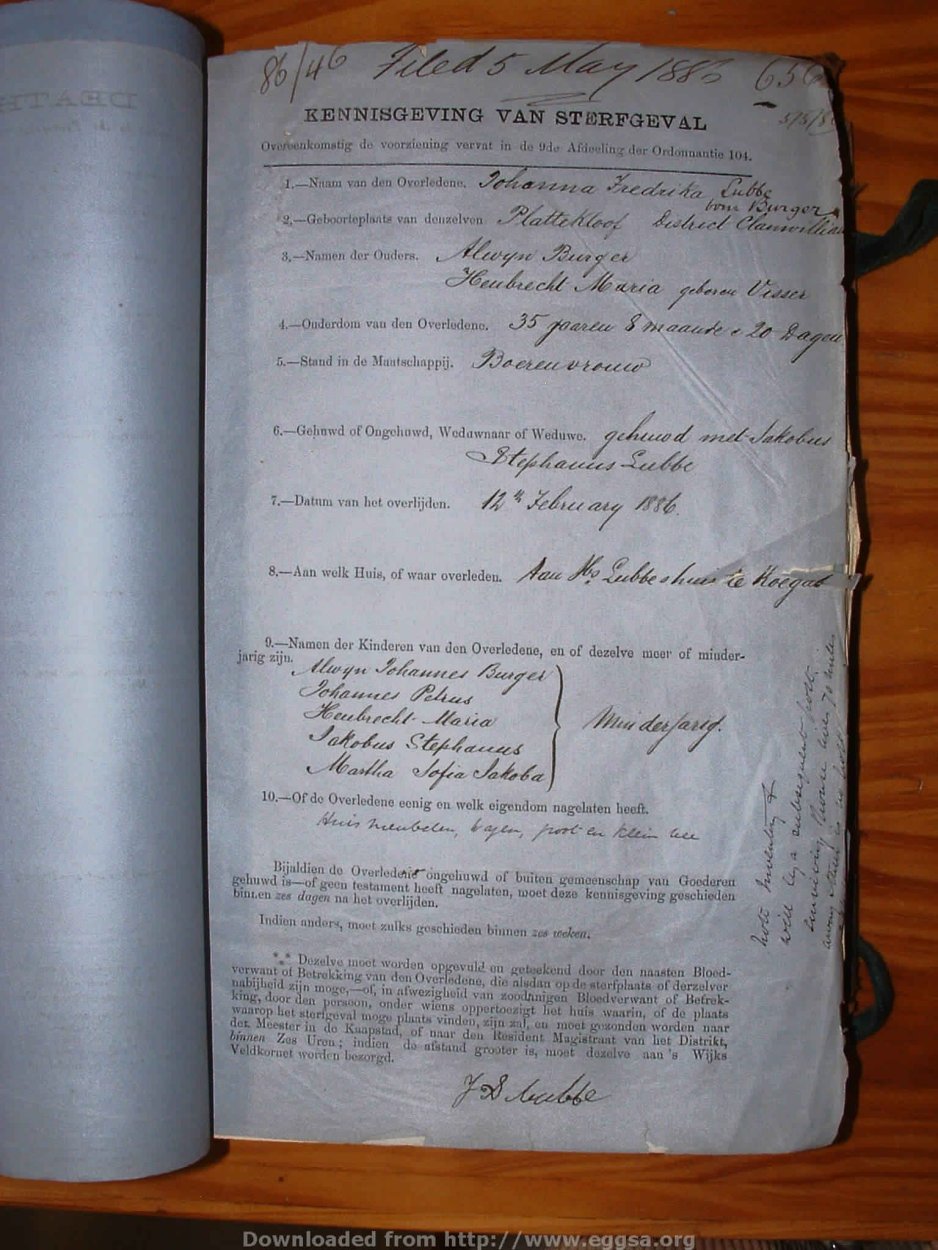 86/46 Filed 5 May 1886 656
5/5/86
KENNISGEVING VAN STERFGEVAL
Overeenkomstig de voorziening vervat in de 9de Afdeeling der Ordonnantie 104.
1.—Naam van den Overledene. Johanna Fredrika Lubbe
born Burger
2.—Geboorteplaats van denzelven Plattekloof District Clanwilliam
3.—Namen der Ouders. Alwyn Burger
Heubrecht Maria geboren Visser
4.—Ouderdom van den Overledene. 35 jaaren 8 maande & 20 Dagen
5.—Stand in de Maatschappij. Boerenvrouw
6.—Gehuwd of Ongehuwd, Weduwnaar of Weduwe. gehuwd met Jakobus
Stephanus Lubbe
7.—Datum van het overlijden. 12th February 1886.
8.—Aan welk Huis, of waar overleden. Aan Lubbes huis te Koegab
9.—Namen der Kinderen van den Overledene, en of dezelve meer of minder-
jarig zijn.
Alwyn Johannes Burger
Johannes Petrus
Heubrecht Maria
Jakobus Stephanus
Martha Sofia Jakoba
Minderjarig.
10.—Of de Overledene eenig en welk eigendom nagelaten heeft.
Huis meubelen, wagen, groot en klein vee
Bijaldien de Overledene ongehuwd of buiten gemeenschap van Goederen
gehuwd is—of geen testament heeft nagelaten, moet deze kennisgeving geschieden
binnen zes dagen na het overlijden.
Indien anders, moet zulks geschieden binnen zes weken.
*** Dezelve moet worden opgevuld en geteekend door den naasten Bloed-
verwant of Betrekking van den Overledene, die alsdan op de sterfplaats of derzelver
nabijheid zijn moge,—of, in afwezigheid van zoodanigen Bloedverwant of Betrek-
king, door den persoon, onder wiens oppertoezigt het huis waarin, of de plaats
waarop het sterfgeval moge plaats vinden, zijn zal, en moet gezonden worden naar
den Meester in de Kaapstad, of naar den Resident Magistraat van het Distrikt,
binnen Zes Uren; indien de afstand grooter is, moet dezelve aan 's Wijks
Veldkornet worden bezorgd.
J S Lubbe
note inventory &
will by a subsequent post.
surviving spouse lives 70 miles
away
DEATH
Downloaded from http://www.eggsa.org